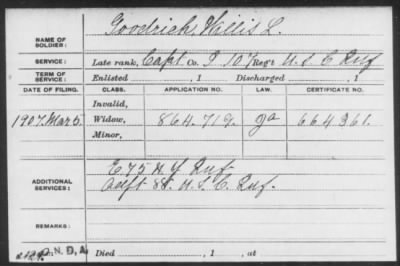 Goodrich, Willis L.
NAME OF SOLDIER:
SERVICE: Late rank, Capt. Co. I, 107 Reg't U. S. C. Inf
TERM OF SERVICE: Enlisted , 1 Discharged , 1
DATE OF FILING. CLASS. APPLICATION NO. LAW. CERTIFICATE NO.
Invalid,
1907. Mar 5. Widow, 864.719. Ja 664361.
Minor,
ADDITIONAL SERVICES:
E 75 N. Y. Inf.
U. S. C. Inf.
REMARKS:
O.N.D.A.
Died , 1 , at